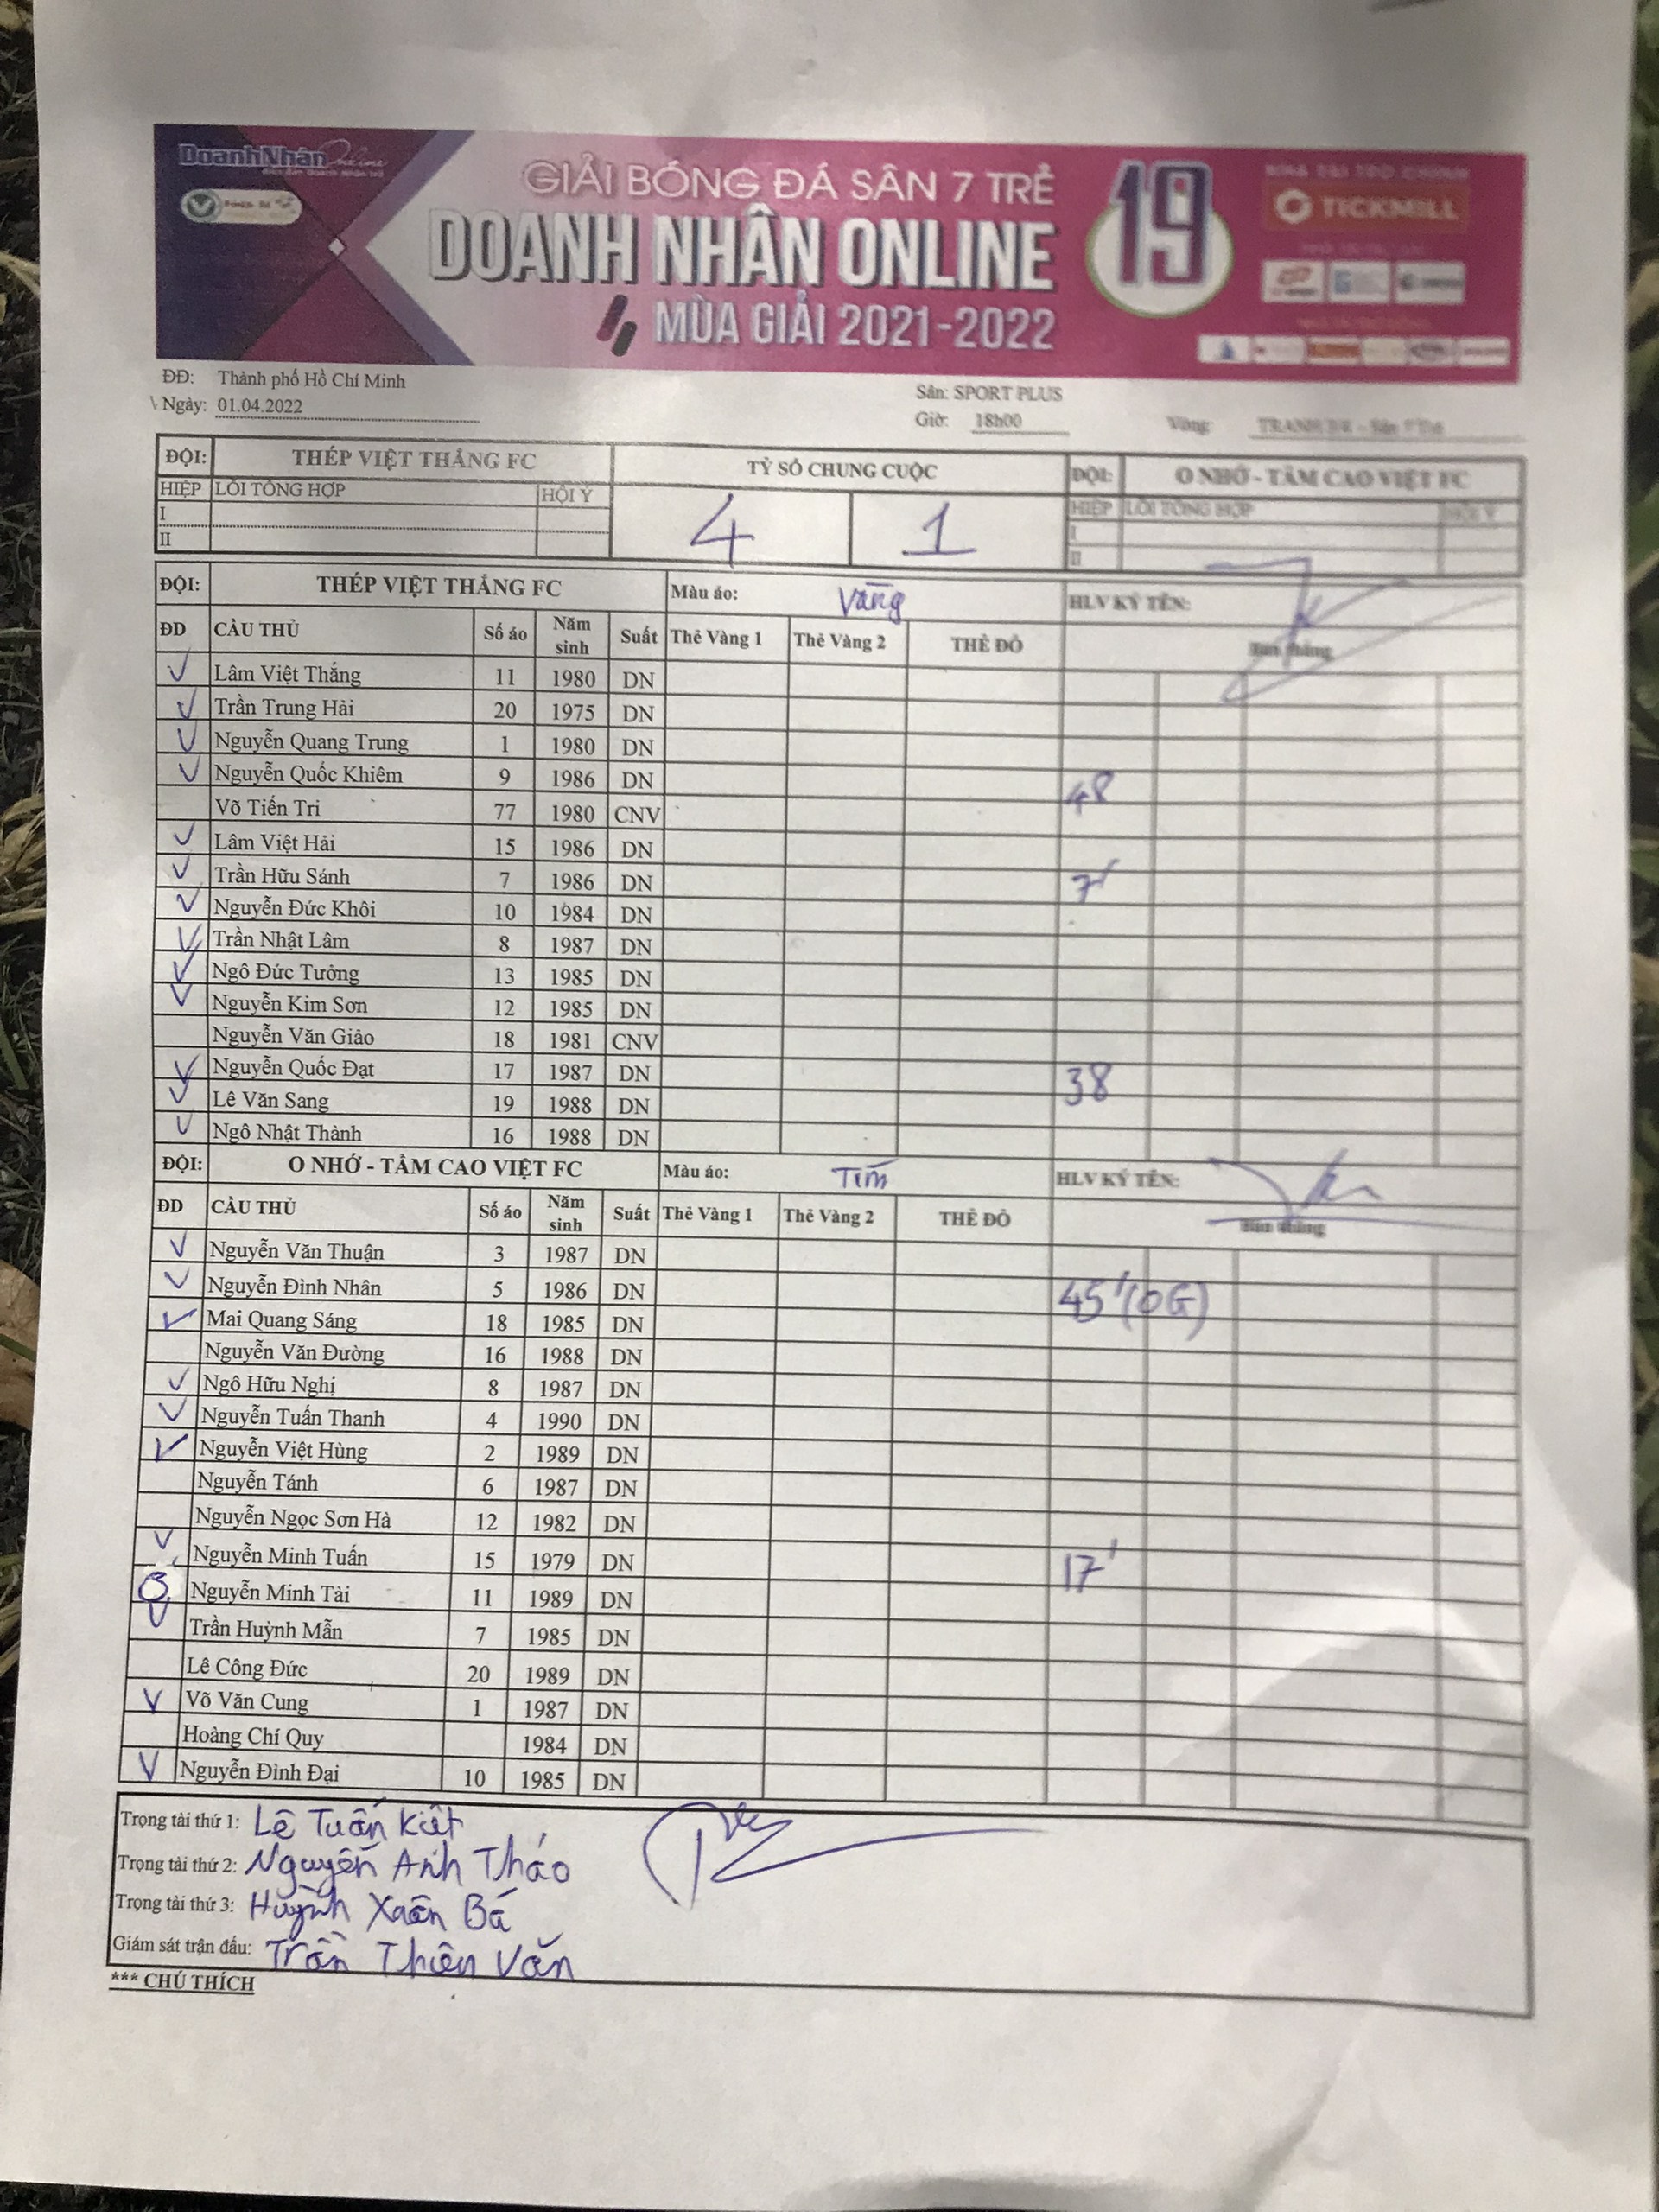 DoanhNhân Online
GIẢI BÓNG ĐÁ SÂN 7 TRẺ
DOANH NHÂN ONLINE
MÙA GIẢI 2021-2022
19
TICKMILL
ĐĐ: Thành phố Hồ Chí Minh
Ngày: 01.04.2022
Sân: SPORT PLUS
Giờ: 18h00 Vòng:
ĐỘI: THÉP VIỆT THẮNG FC TỶ SỐ CHUNG CUỘC ĐỘI: O NHỚ - TẦM CAO VIỆT FC
HIỆP LỖI TỔNG HỢP HỘI Ý 4 1 HIỆP LỖI TỔNG HỢP HỘI Ý
I I
II II
ĐỘI: THÉP VIỆT THẮNG FC Màu áo: Vàng HLV KÝ TÊN:
ĐD CẦU THỦ Số áo Năm sinh Suất Thẻ Vàng 1 Thẻ Vàng 2 THẺ ĐỎ Bàn thắng
Lâm Việt Thắng 11 1980 DN
Trần Trung Hải 20 1975 DN
Nguyễn Quang Trung 1 1980 DN
Nguyễn Quốc Khiêm 9 1986 DN 48
Võ Tiến Tri 77 1980 CNV
Lâm Việt Hải 15 1986 DN
Trần Hữu Sánh 7 1986 DN 7'
Nguyễn Đức Khôi 10 1984 DN
Trần Nhật Lâm 8 1987 DN
Ngô Đức Tưởng 13 1985 DN
Nguyễn Kim Sơn 12 1985 DN
Nguyễn Văn Giảo 18 1981 CNV
Nguyễn Quốc Đạt 17 1987 DN 38
Lê Văn Sang 19 1988 DN
Ngô Nhật Thành 16 1988 DN
ĐỘI: O NHỚ - TẦM CAO VIỆT FC Màu áo: Tím HLV KÝ TÊN:
ĐD CẦU THỦ Số áo Năm sinh Suất Thẻ Vàng 1 Thẻ Vàng 2 THẺ ĐỎ Bàn thắng
Nguyễn Văn Thuận 3 1987 DN
Nguyễn Đình Nhân 5 1986 DN 45'(OG)
Mai Quang Sáng 18 1985 DN
Nguyễn Văn Đường 16 1988 DN
Ngô Hữu Nghị 8 1987 DN
Nguyễn Tuấn Thanh 4 1990 DN
Nguyễn Việt Hùng 2 1989 DN
Nguyễn Tánh 6 1987 DN
Nguyễn Ngọc Sơn Hà 12 1982 DN
Nguyễn Minh Tuấn 15 1979 DN 17'
Nguyễn Minh Tài 11 1989 DN
Trần Huỳnh Mẫn 7 1985 DN
Lê Công Đức 20 1989 DN
Võ Văn Cung 1 1987 DN
Hoàng Chí Quy 1984 DN
Nguyễn Đình Đại 10 1985 DN
Trọng tài thứ 1: Lê Tuấn Kiệt
Trọng tài thứ 2: Nguyễn Anh Thảo
Trọng tài thứ 3: Huỳnh Xuân Bá
Giám sát trận đấu: Trần Thiên Văn
*** CHÚ THÍCH